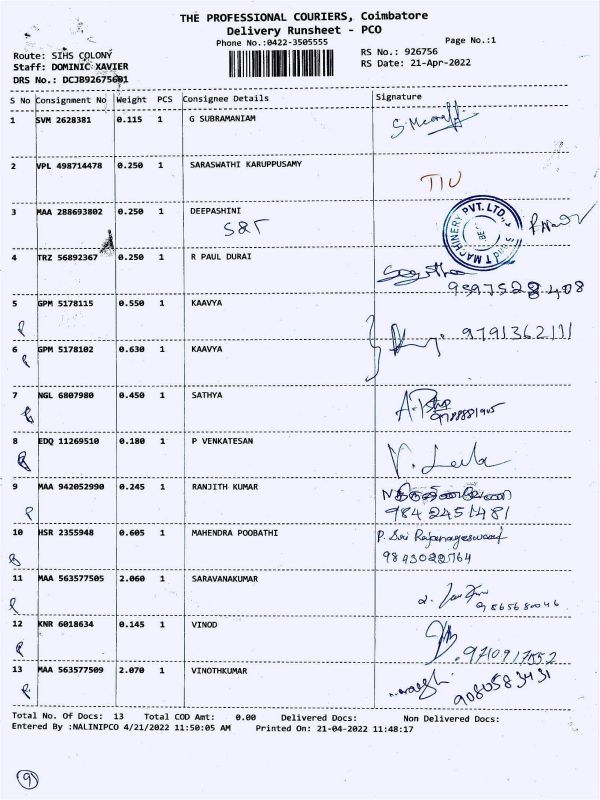 THE PROFESSIONAL COURIERS, Coimbatore
Delivery Runsheet - PCO
Phone No.:0422-3505555
Page No.:1
Route: SIHS COLONY
RS No.: 926756
Staff: DOMINIC XAVIER
RS Date: 21-Apr-2022
DRS No.: DCJB92675601
S No Consignment No Weight PCS Consignee Details Signature
1 SVM 2628381 0.115 1 G SUBRAMANIAM
2 VPL 498714478 0.250 1 SARASWATHI KARUPPUSAMY
TIU
3 MAA 288693802 0.250 1 DEEPASHINI
S&T
MACHINERY PVT. LTD.
4 TRZ 56892367 0.250 1 R PAUL DURAI
5 GPM 5178115 0.550 1 KAAVYA
9791362111
6 GPM 5178102 0.630 1 KAAVYA
7 NGL 6807980 0.450 1 SATHYA
8 EDQ 11269510 0.180 1 P VENKATESAN
V. Leela
9 MAA 942052990 0.245 1 RANJITH KUMAR
9842451481
10 HSR 2355948 0.605 1 MAHENDRA POOBATHI
P. Sri Rajarajeswari
9843022764
11 MAA 563577505 2.060 1 SARAVANAKUMAR
9865680046
12 KNR 6018634 0.145 1 VINOD
9710917552
13 MAA 563577509 2.070 1 VINOTHKUMAR
9080583431
Total No. Of Docs: 13 Total COD Amt: 0.00 Delivered Docs: Non Delivered Docs:
Entered By :NALINIPCO 4/21/2022 11:50:05 AM Printed On: 21-04-2022 11:48:17
9